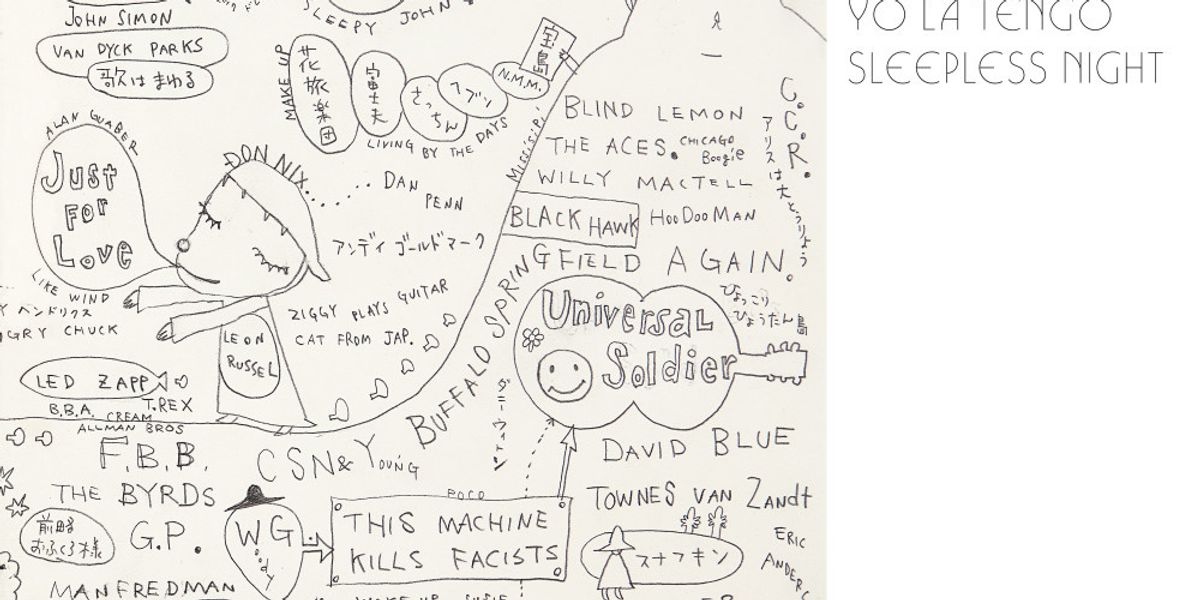 YO LA TENGO
SLEEPLESS NIGHT
JOHN SIMON
SLEEPY JOHN
VAN DYCK PARKS
歌はまわる
MAKE UP
花旅楽団
富士夫
さっちん
ヘブン
N.M.M.
宝島
LIVING BY THE DAYS
Missisipi
BLIND LEMON
THE ACES.
CHICAGO
Boogie
WILLY MACTELL
BLACK HAWK
HooDooMAN
C.C.R.
アリスは大とうりょう
ALAN GUABER
Just
For
Love
DON NIX
DAN
PENN
アンディ ゴールドマーク
LIKE WIND
ヘンドリクス
GRY CHUCK
ZIGGY PLAYS GUITAR
CAT FROM JAP.
LEON
RUSSEL
LED ZAPP
B.B.A. CREAM
T.REX
ALLMAN BROS
BUFFALO SPRINGFIELD AGAIN.
Universal
Soldier
ひょっこり
ひょうたん島
F.B.B.
CSN& Young
DAVID BLUE
THE BYRDS
POCO
TOWNES VAN Zandt
前略
おふくろ様
G.P.
WG
THIS MACHINE
KILLS FACISTS
スナフキン
ERIC
MANFREDMAN